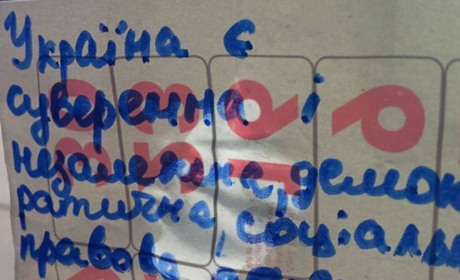 Україна є
суверенна і
незалежна, демок
ратична, соціаль
правова